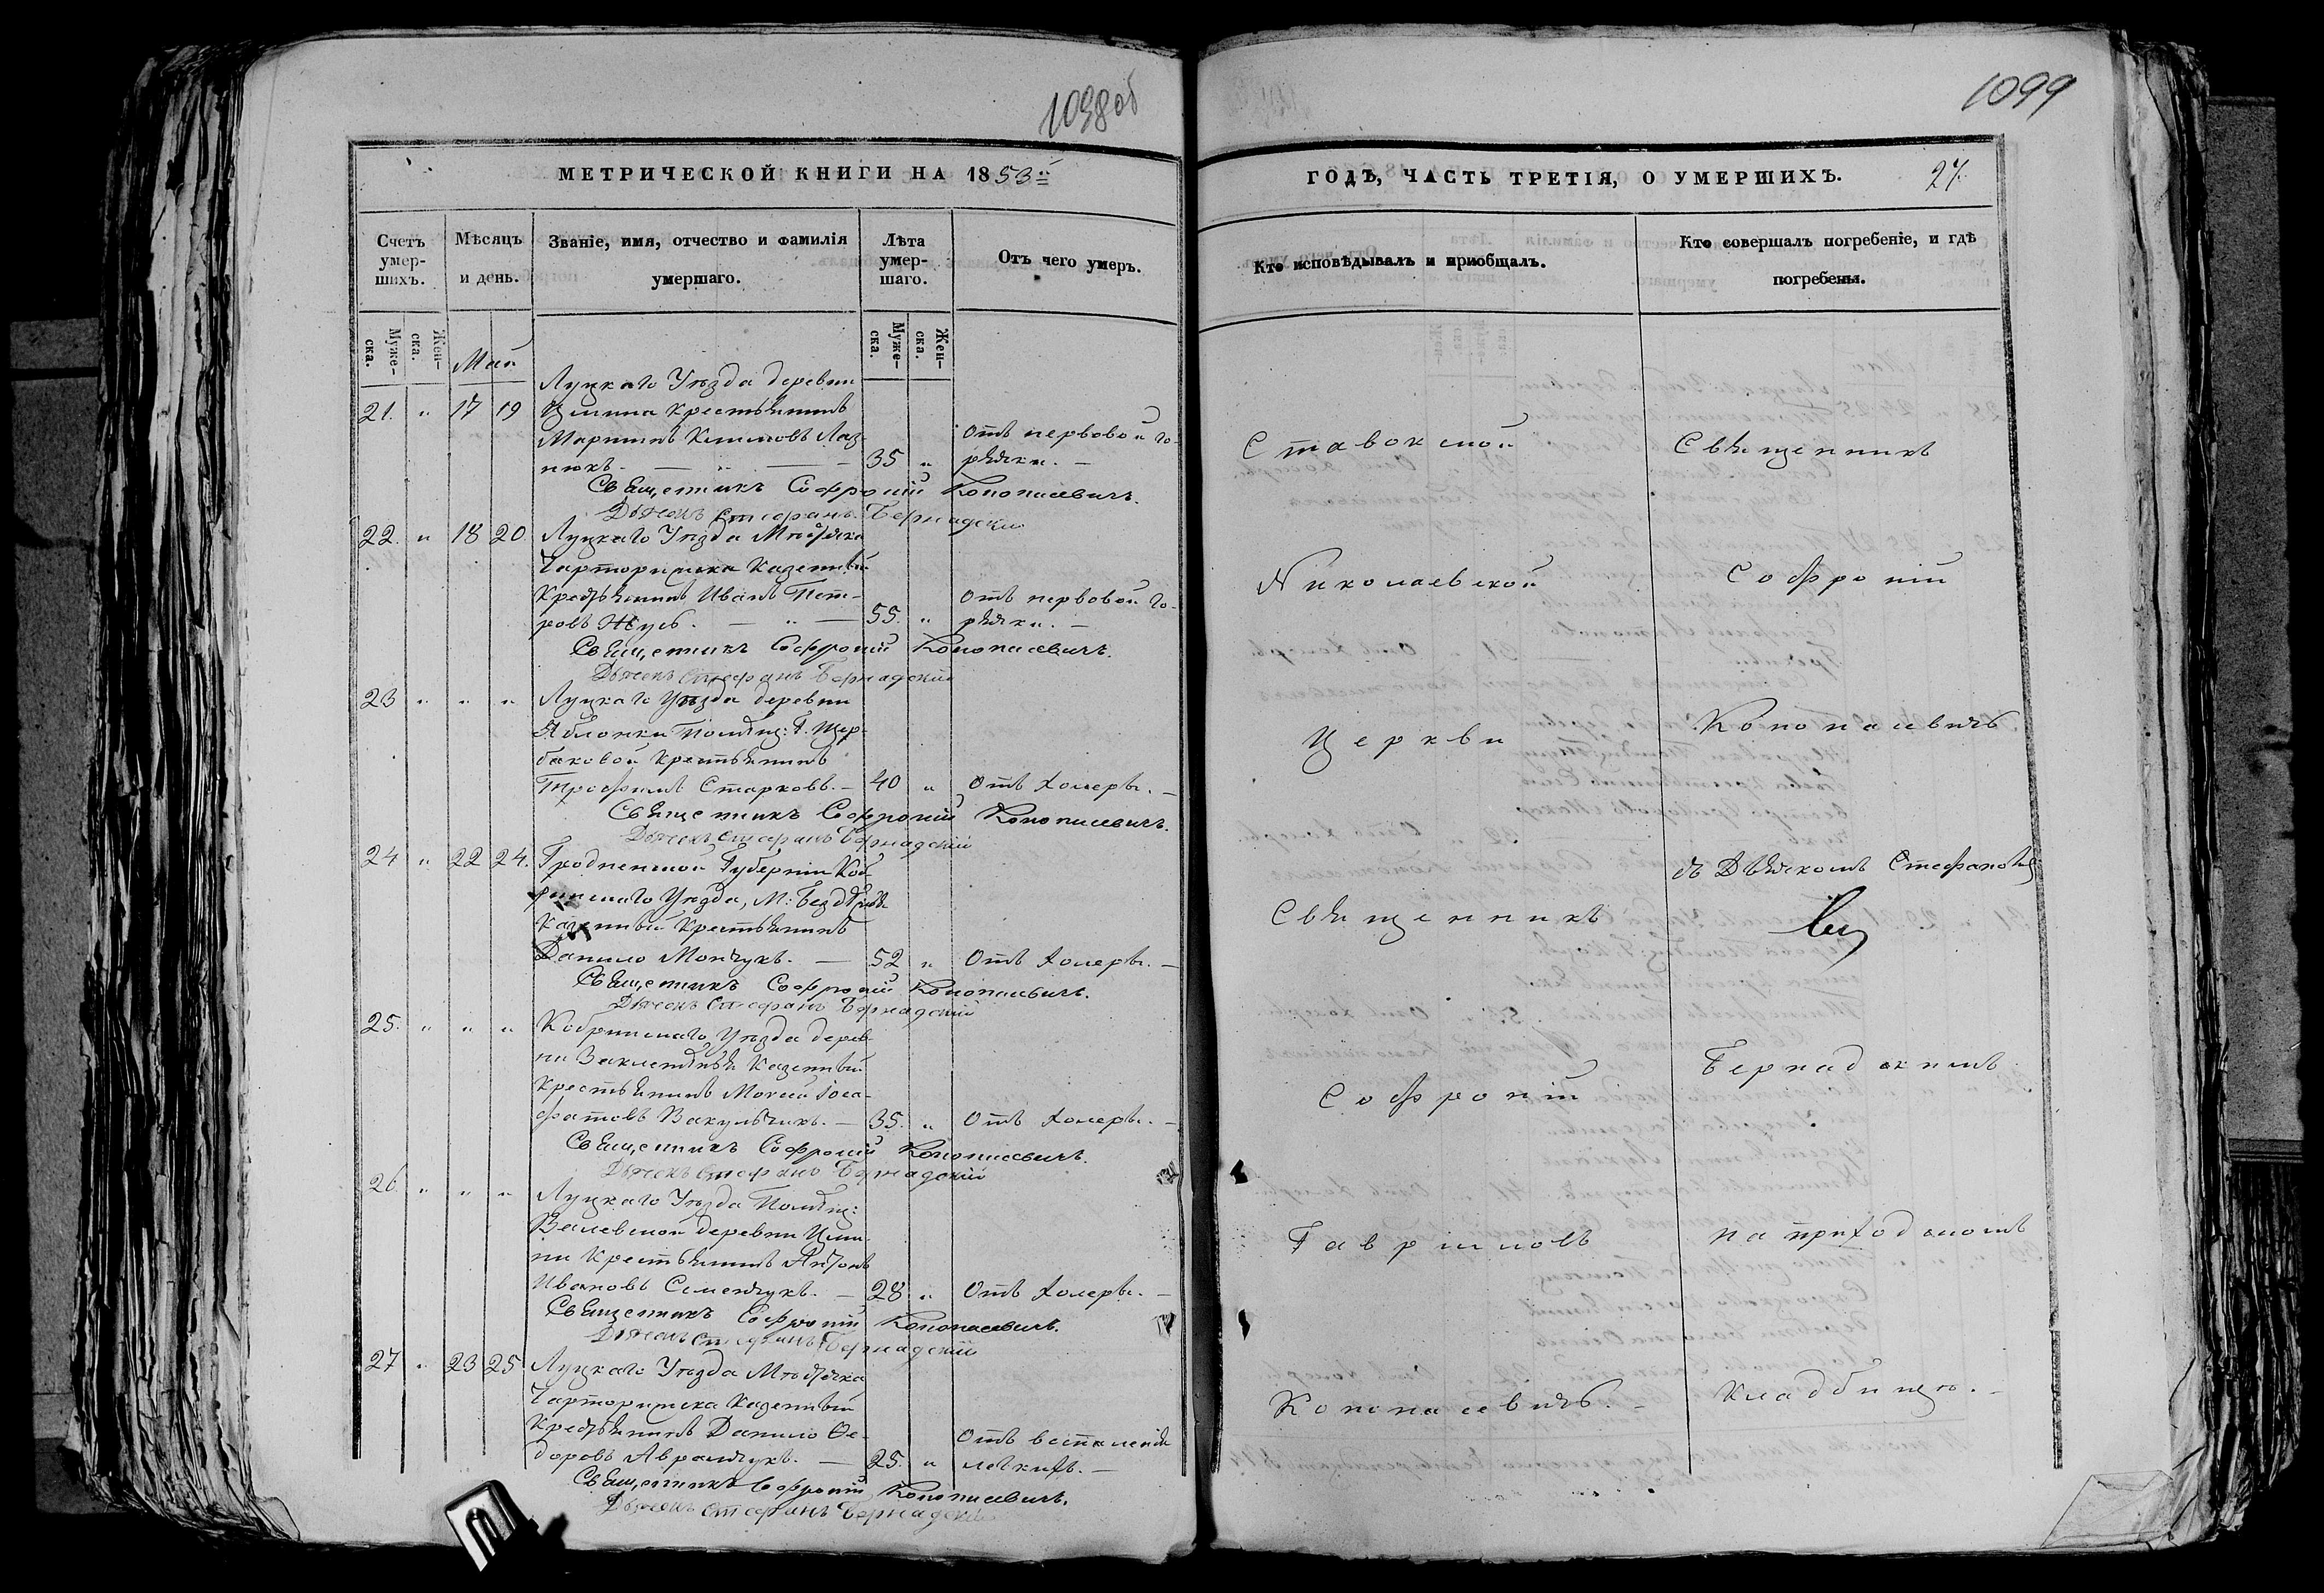 1098об
МЕТРИЧЕСКОЙ КНИГИ НА 1853й
Счетъ умер-шихъ.
Мѣсяцъ и день.
Званіе, имя, отчество и фамилія умершаго.
Лѣта умер-шаго.
Отъ чего умеръ.
Муже-ска.
Жен-ска.
Муже-ска.
Жен-ска.
Май
Луцкаго Уѣзда деревни
21. " 17 19 Цмины крестьянинъ
Мартинъ Климовъ Лаз-
нюкъ. — " — 35 "
Отъ нервовой го-
рячки. —
Священникъ Софроній Кононасевичъ.
Дьячекъ Стефанъ Бернадскій
22. " 18 20 Луцкаго Уѣзда Мѣстѣчка
Чарторийска казенный
Крестьянинъ Иванъ Пет-
ровъ Жусь. — " — 55. "
Отъ нервовой го-
рячки. —
Священникъ Софроній Кононасевичъ.
Дьячекъ Стефанъ Бернадскій
23 " " " Луцкаго Уѣзда деревни
Яблонки Помѣщ: Г. Щер-
баковой Крестьянинъ
Трофимъ Старковъ. — 40 " Отъ Холеры. —
Священникъ Софроній Кононасевичъ.
Дьячекъ Стефанъ Бернадскій
24 " 22 24. Гродненской Губерніи Коб-
ринскаго Уѣзда, М:
Казенный Крестьянинъ
Данило Мончукъ. — 52 " Отъ Холеры. —
Священникъ Софроній Кононасевичъ.
Дьячекъ Стефанъ Бернадскій
25. " " " Кобринскаго Уѣзда дерев-
ни Казенный
Крестьянинъ Мокей Іоса-
фатовъ Вакульчикъ. — 35. " Отъ Холеры. —
Священникъ Софроній Кононасевичъ.
Дьячекъ Стефанъ Бернадскій
26. " " " Луцкаго Уѣзда Помѣщ:
Валевской деревни Цми-
ни Крестьянинъ Антонъ
Ивановъ Семенчукъ. — 28 " Отъ Холеры. —
Священникъ Софроній Кононасевичъ.
Дьячекъ Стефанъ Бернадскій
27 " 23 25 Луцкаго Уѣзда Мѣстѣчка
Чарторийска казенный
Крестьянинъ Данило Ѳе-
доровъ Аврамчукъ. — 25. "
Отъ воспаленія
легкихъ. —
Священникъ Софроній Кононасевичъ.
Дьячекъ Стефанъ Бернадскій
1099
ГОДЪ, ЧАСТЬ ТРЕТІЯ, О УМЕРШИХЪ. 27.
Кто исповѣдывалъ и приобщалъ.
Кто совершалъ погребеніе, и гдѣ погребены.
Ставокской
Николаевской
Церкви
Священникъ
Софроній
Гавриловъ
Кононасевичъ. —
Священникъ
Софроній
Кононасевичъ
съ Дьячкомъ
Бернадскимъ
на приходскомъ
кладбищѣ. —